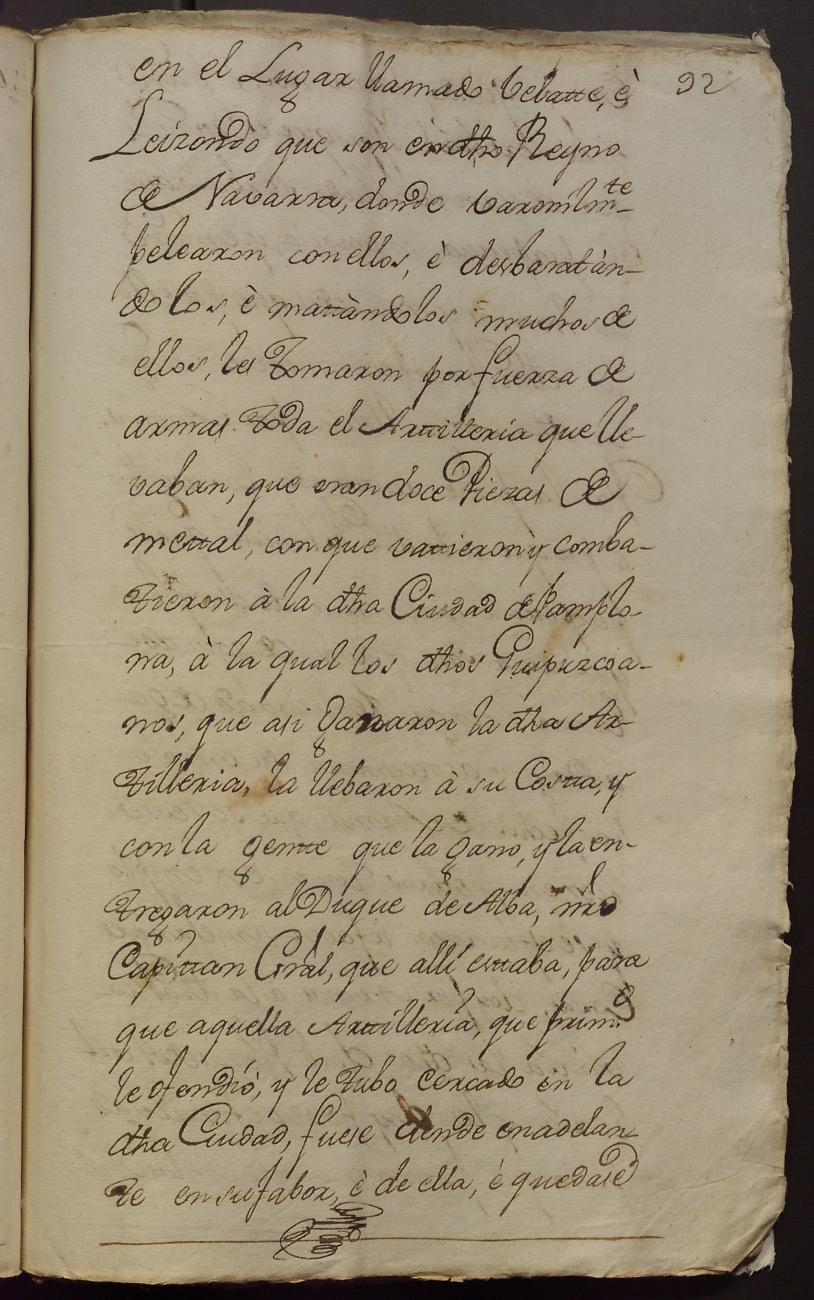 en el Lugar llamado Velatte, è 92
Leizondo que son en dho Reyno
de Navarra, donde varonilm.te
pelearon con ellos, è desbaratàn-
dolos, è mattàndolos muchos de
ellos, les Tomaron por fuerza de
armas Toda el Arttilleria que lle-
vaban, que eran doce Piezas de
mettal, con que vattieron y comba-
Tieron à la dha Ciudad de Pamplo-
na, à la qual los dhos Guipuzcoa-
nos, que asi ganaron la dha Ar-
Tilleria, la llebaron à su Costta, y
con la gentte que la gano, y la en-
Tregaron al Duque de Alba, nr̃o
Capittan Gràl, que allí esttaba, para
que aquella Arttillería, que prim.o
le ofendió, y le Tubo cercado en la
dha Ciudad, fuese dende en adelan-
Te en su fabor, è de ella, è quedase